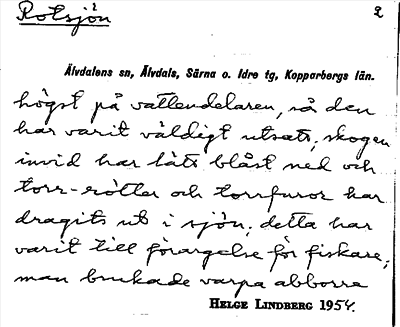 Rotsjön
2
Älvdalens sn, Älvdals, Särna o. Idre tg, Kopparbergs län.
högst på vattendelaren, så den
har varit väldigt utsatt, skogen
invid har låts blåst ned och
torr-rötter och torrfuror har
dragits ut i sjön; detta har
varit till förargelse för fiskare;
man brukade varpa abborre
HELGE LINDBERG 1954.